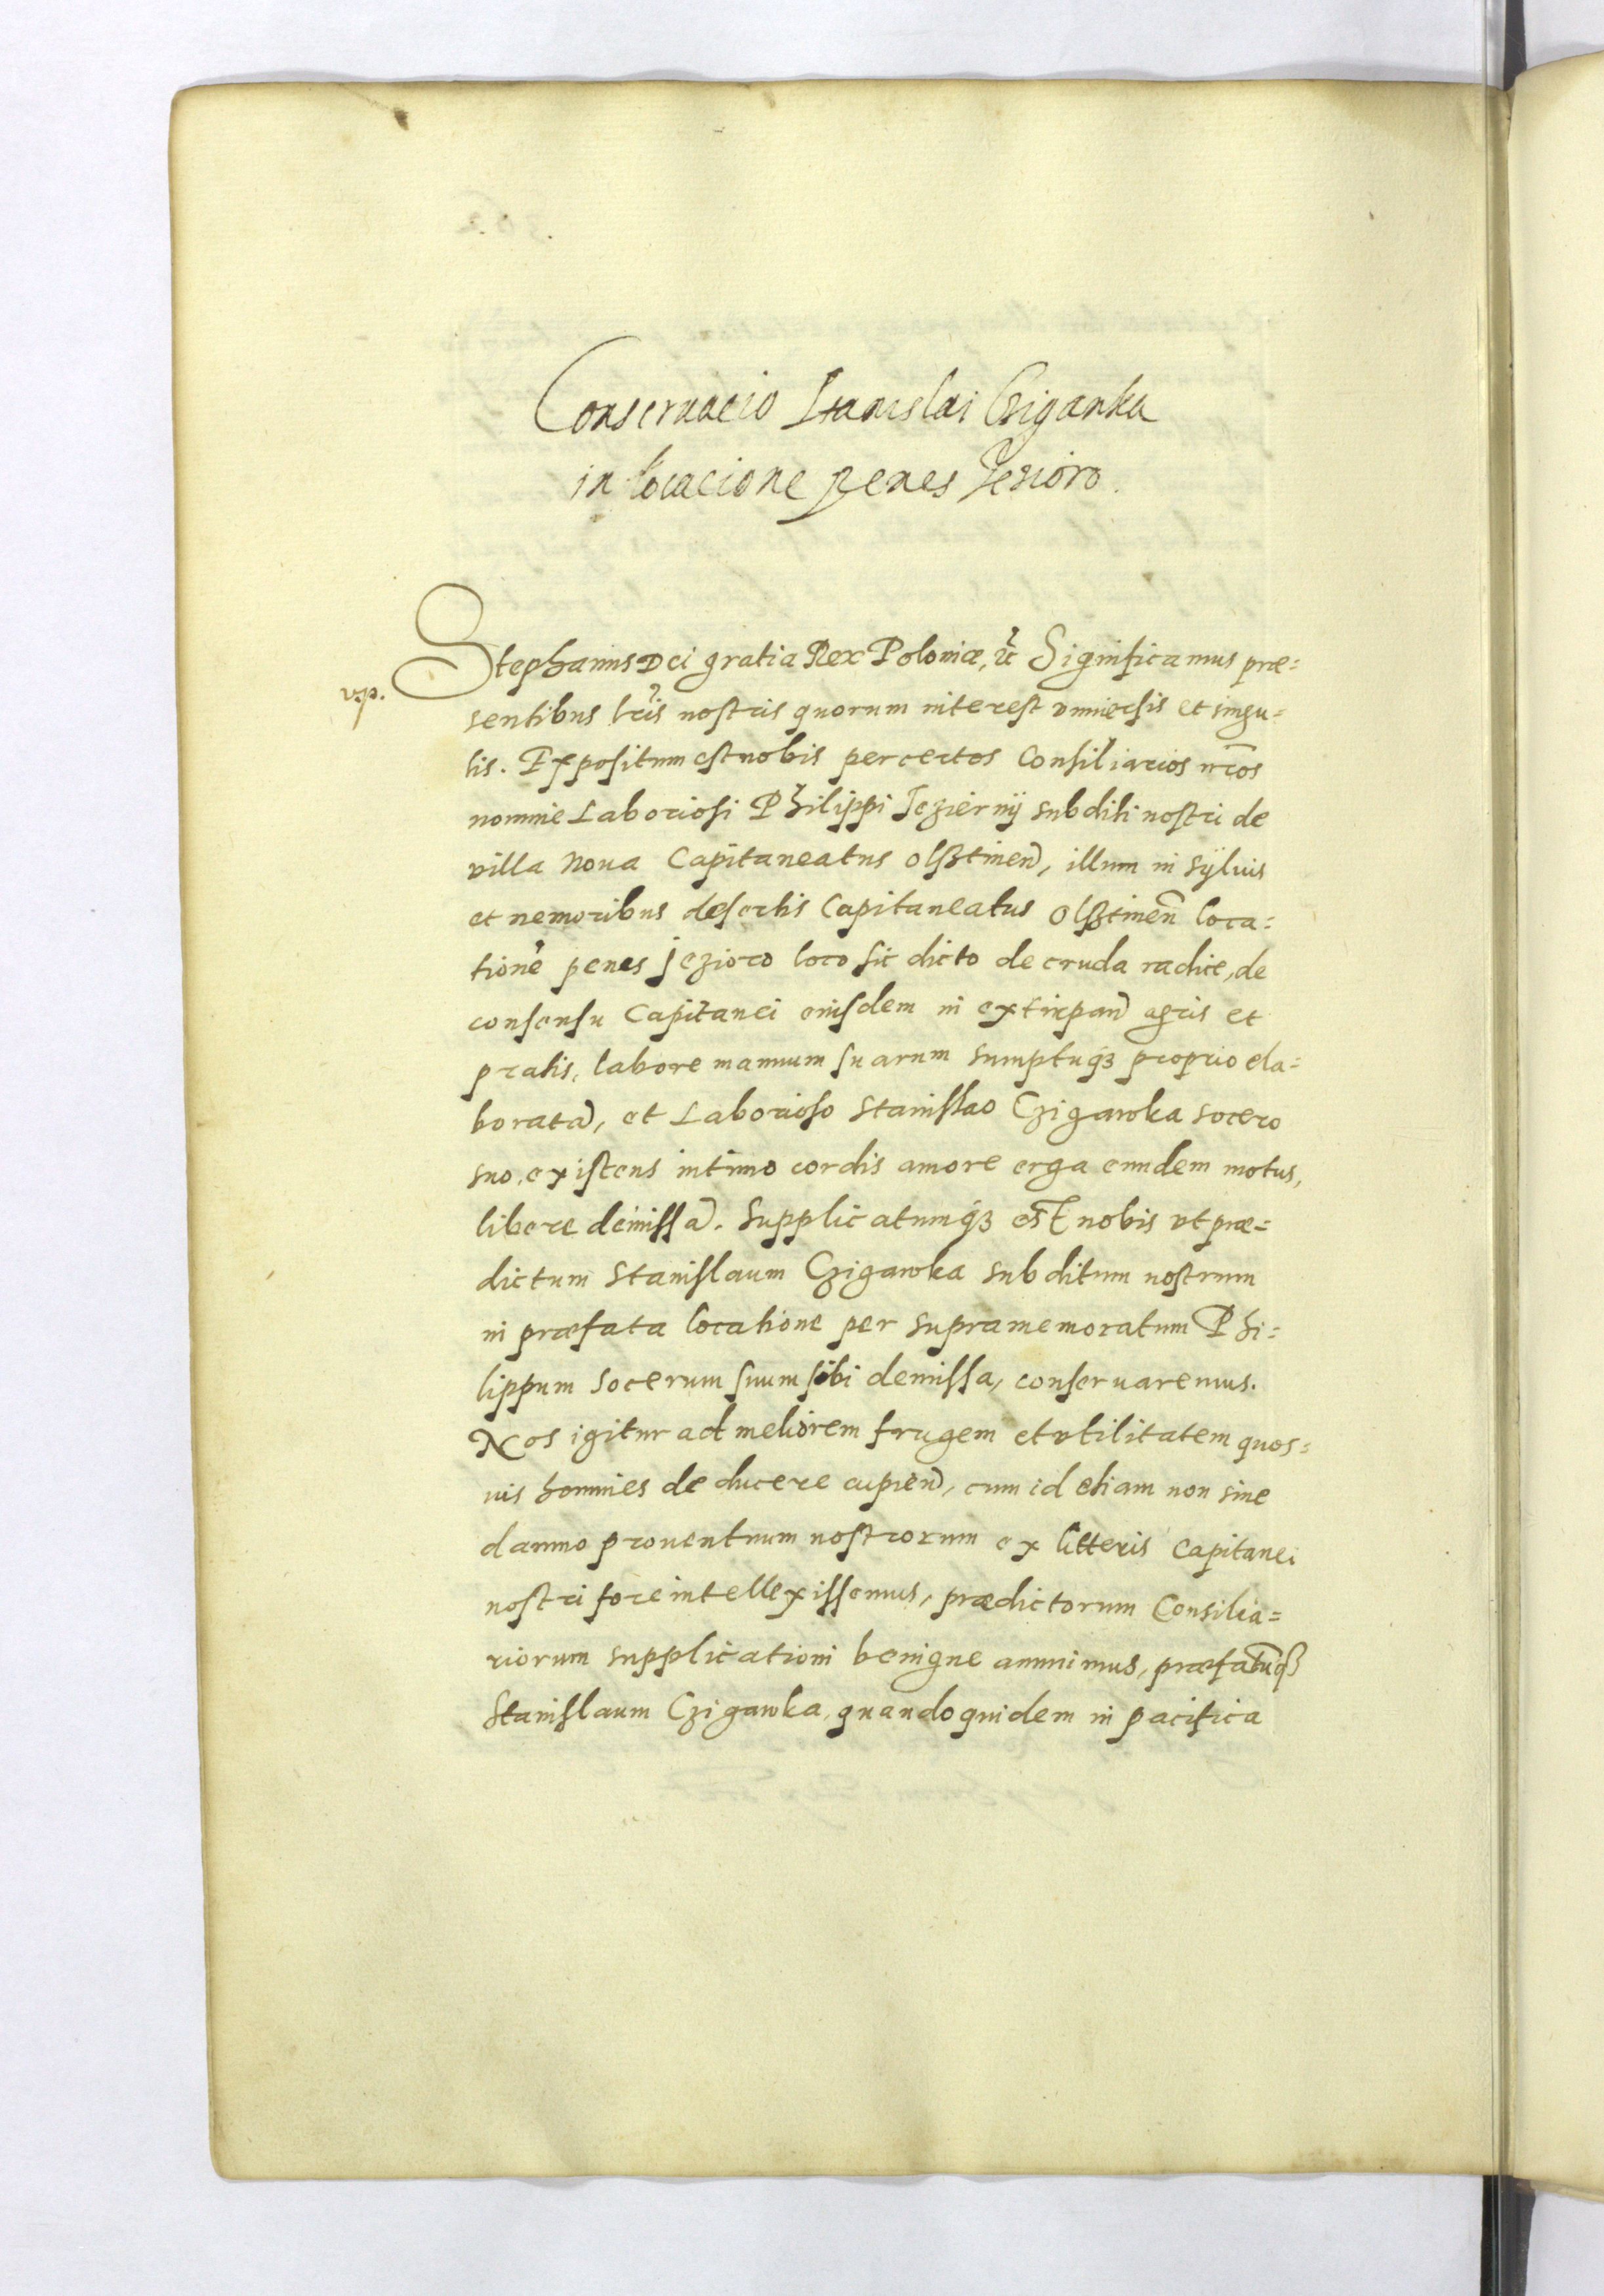 Conseruacio Stanislai Czigawka
in locacione penes Jezioro.
Stephanus Dei gratia Rex Poloniæ, etc Significamus præ=
vp.
sentibus lris nostris quorum interest vniuersis et singu=
lis. Expositum est nobis per certos Consiliarios nros
nomine Laboriosi Philippi Jeziernij subditi nostri de
villa Noua Capitaneatus Olsztinen, illum in syluis
et nemoribus desertis Capitaneatus Olsztinen loca=
tione penes Jezioro loco sic dicto de cruda radice, de
consensu Capitanei eiusdem in extirpan agris et
pratis, labore manuum suarum sumptuq3 proprio ela=
borata, et Laborioso Stanislao Czigawka socero
suo, existens intimo cordis amore erga eundem motus,
libere demissa. Supplicatumq3 est nobis vt præ=
dictum Stanislaum Czigawka subditum nostrum
in præfata locatione per supramemoratum Phi=
lippum socerum suum sibi demissa, conseruaremus.
Nos igitur ad meliorem frugem et vtilitatem quos=
uis homines deducere cupien, cum id etiam non sine
damno prouentuum nostrorum ex litteris Capitanei
nostri fore intellexissemus, prædictorum Consilia=
riorum supplicationi benigne annuimus, præfatuq3
Stanislaum Czigawka, quandoquidem in pacifica